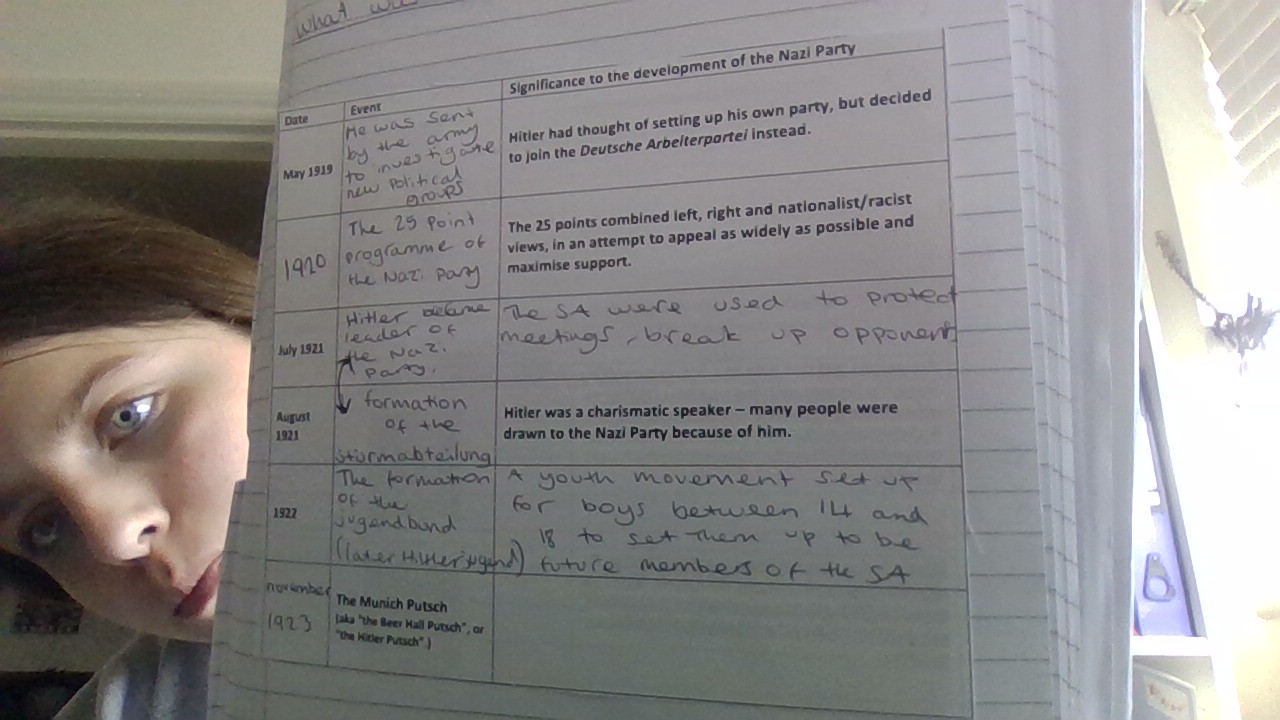 what
Date
Event
Significance to the development of the Nazi Party
May 1919
He was sent
by the army
to investigate
new political
groups
Hitler had thought of setting up his own party, but decided
to join the Deutsche Arbeiterpartei instead.
1920
The 25 Point
programme of
the Nazi Party
The 25 points combined left, right and nationalist/racist
views, in an attempt to appeal as widely as possible and
maximise support.
July 1921
Hitler became
leader of
the Nazi
Party.
The SA were used to protect
meetings, break up opponents
August
1921
formation
of the
sturmabteilung
Hitler was a charismatic speaker – many people were
drawn to the Nazi Party because of him.
1922
The formation
of the
jugendbund
(later Hitlerjugend)
A youth movement set up
for boys between 14 and
18 to set them up to be
future members of the SA
november
1923
The Munich Putsch
(aka "the Beer Hall Putsch", or
"the Hitler Putsch".)